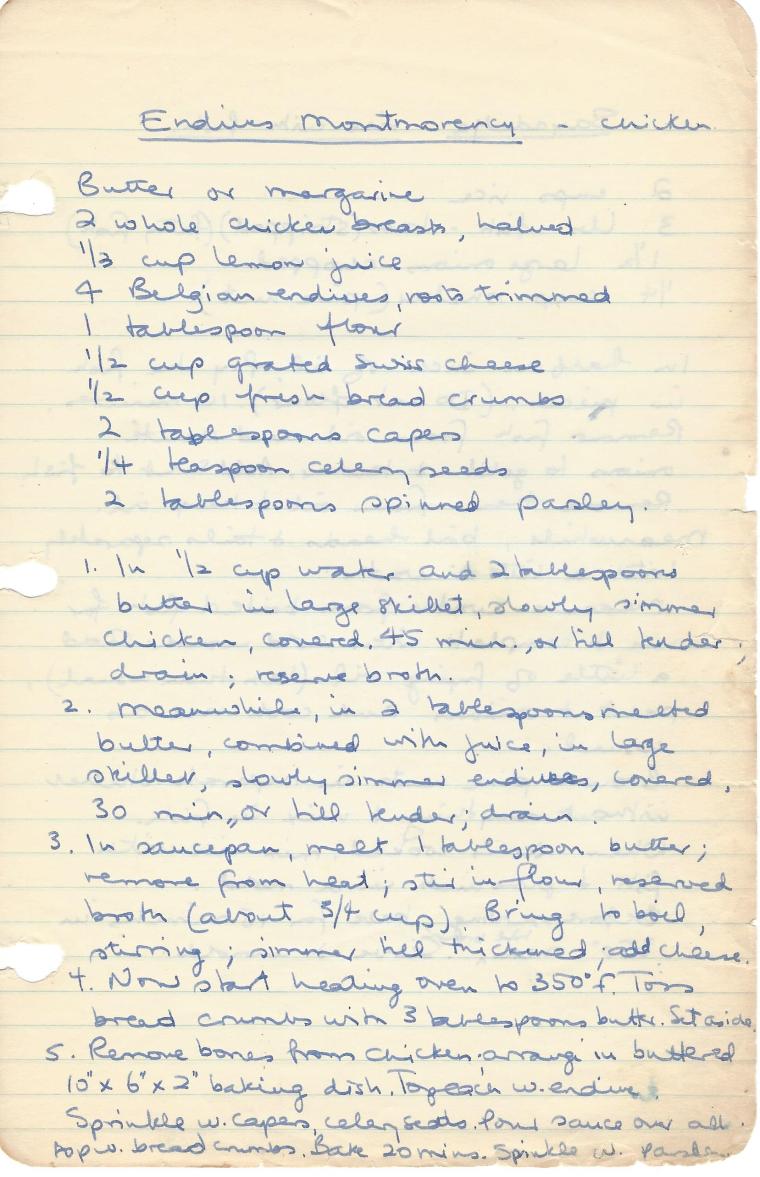 Endives Montmorency - chicken
Butter or margarine
2 whole chicken breasts, halved
1/3 cup lemon juice
4 Belgian endives, roots trimmed
1 tablespoon flour
1/2 cup grated Swiss cheese
1/2 cup fresh bread crumbs
2 tablespoons capers
1/4 teaspoon celery seeds
2 tablespoons spinned parsley.
1. In 1/2 cup water and 2 tablespoons
butter in large skillet, slowly simmer
chicken, covered. 45 min., or till tender;
drain; reserve broth.
2. Meanwhile, in 2 tablespoons melted
butter, combined with juice, in large
skillet, slowly simmer endives, covered,
30 min, or till tender; drain.
3. In saucepan, melt 1 tablespoon butter;
remove from heat; stir in flour, reserved
broth (about 3/4 cup). Bring to boil,
stirring; simmer till thickened; add cheese.
4. Now start heating oven to 350°f. Toss
bread crumbs with 3 tablespoons butter. Set aside
5. Remove bones from chicken; arrange in buttered
10" x 6" x 2" baking dish. Top each w. endive.
Sprinkle w. capers, celery seeds. Pour sauce over all.
Top w. bread crumbs. Bake 20 mins. Sprinkle w. parsley.